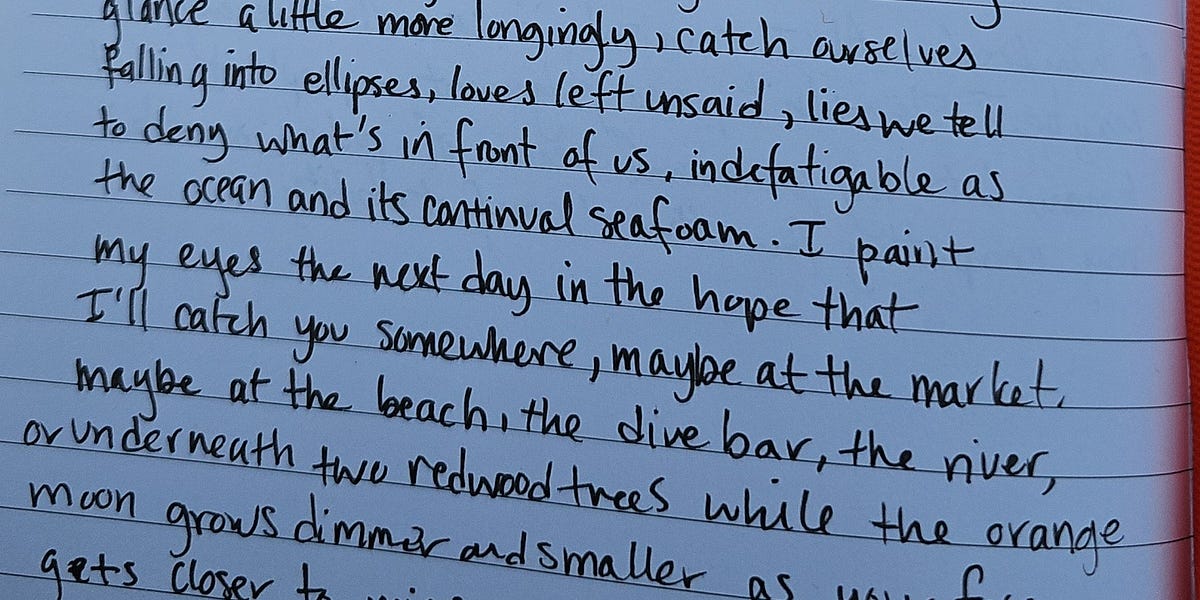 glance a little more longingly, catch ourselves
falling into ellipses, loves left unsaid, lies we tell
to deny what's in front of us, indefatigable as
the ocean and its continual seafoam. I paint
my eyes the next day in the hope that
I'll catch you somewhere, maybe at the market,
maybe at the beach, the dive bar, the river,
or underneath two redwood trees while the orange
moon grows dimmer and smaller as
gets closer to